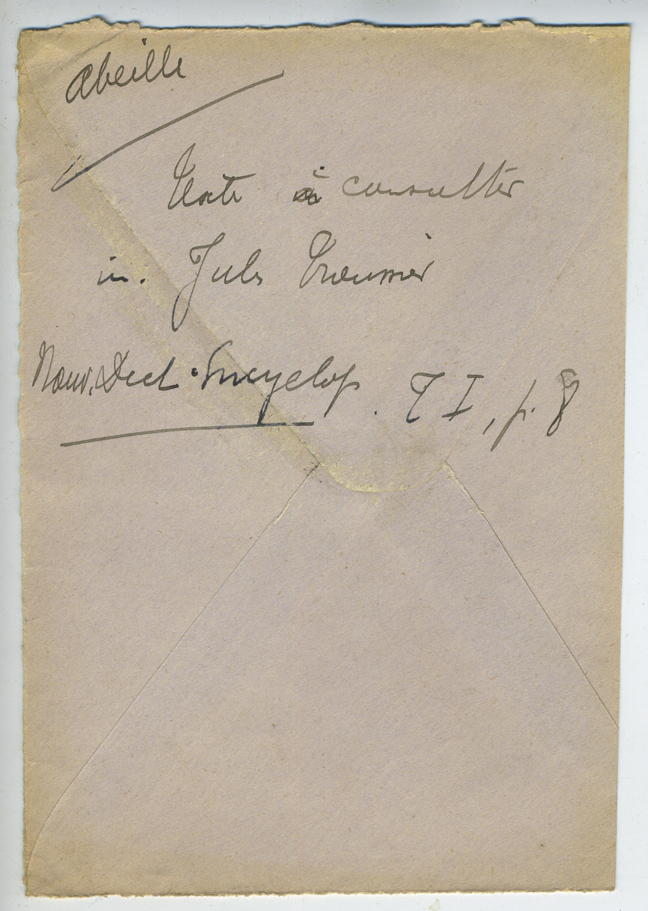 Abeille
Texte à consulter
in. Jules Trousset
Nouv. Dict. Encyclop. T I, p. 8